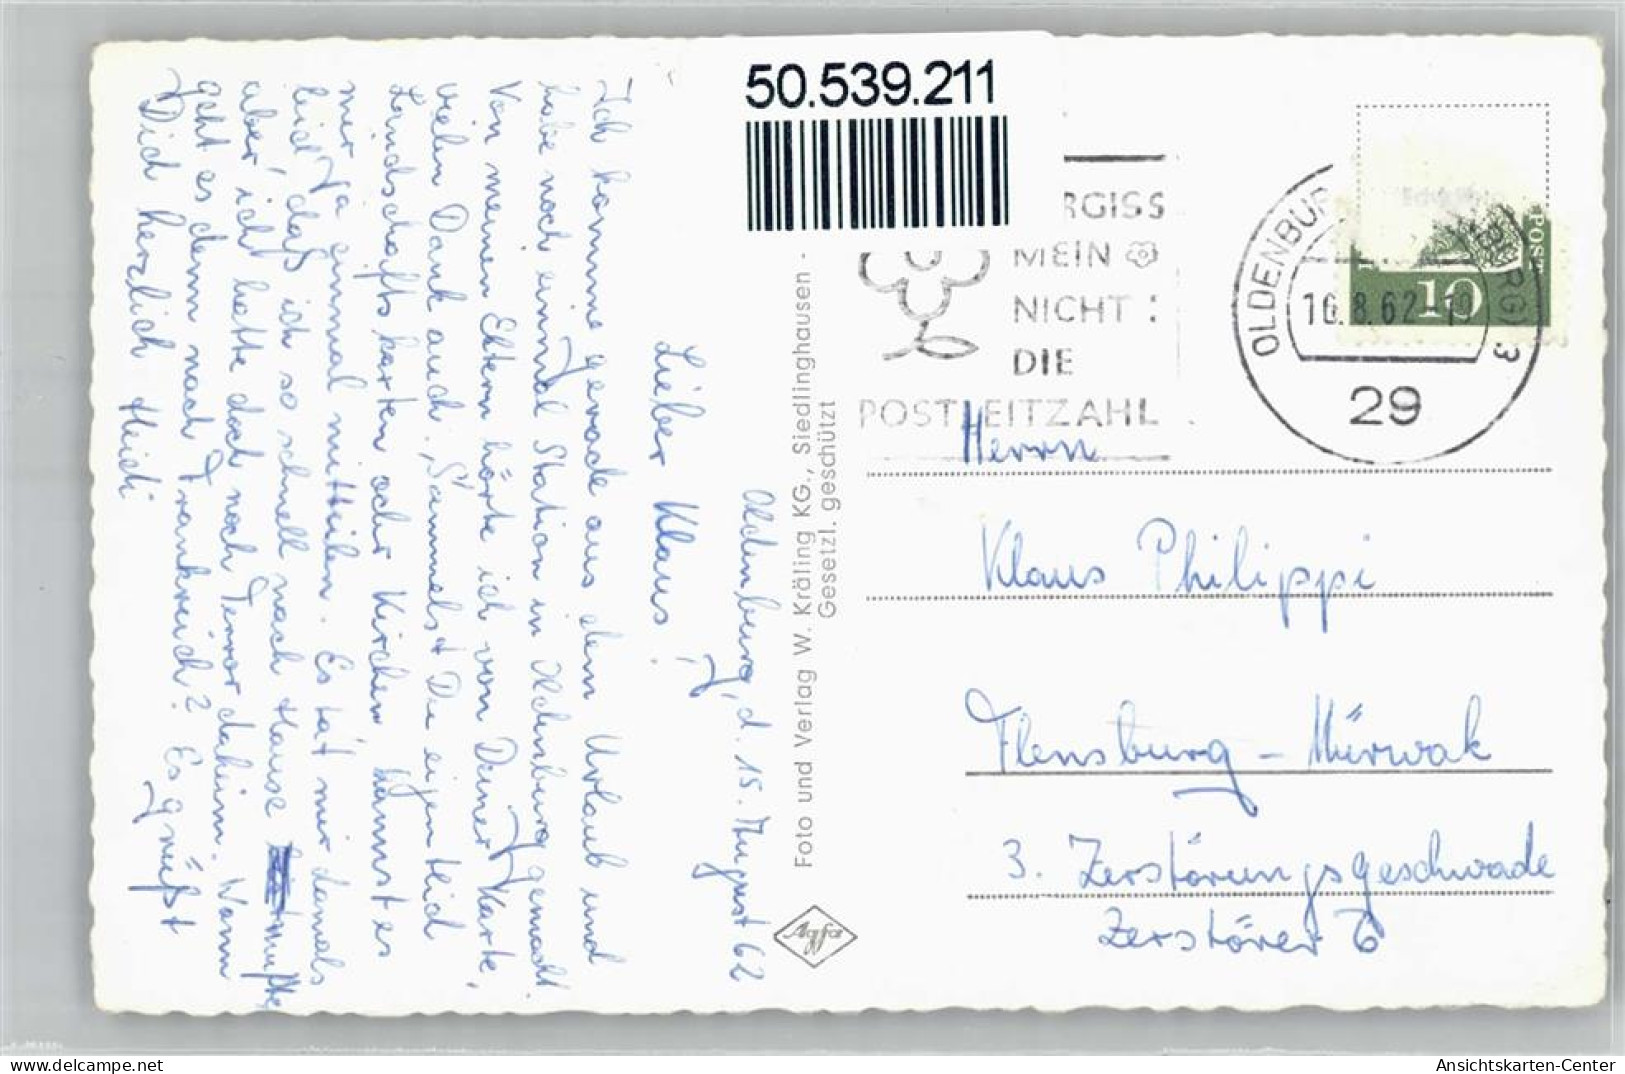 50.539.211
RGISS
MEIN
NICHT :
DIE
POSTLEITZAHL
OLDENBUR RG) 3
16.8.62-19
29
POST
10
Oldenburg, d. 15. August 62
Lieber Klaus!
Ich komme gerade aus dem Urlaub und
habe noch einmal Station in Oldenburg gemacht.
Von meinen Eltern hörte ich von Deiner Karte,
vielen Dank auch. Sammelst Du eigentlich
Landschaftskarten oder Kirchen, kannst es
mir ja einmal mitteilen. Es tat mir damals
leid, daß ich so schnell nach Hause mußte,
aber ich hatte doch noch Terror daheim. Wann
geht es denn nach Frankreich? Es grüßt
Dich herzlich Heidi
Foto und Verlag W. Kräling KG., Siedlinghausen -
Gesetzl. geschützt
Agfa
Herrn
Klaus Philippi
Flensburg - Mürwik
3. Zerstörungsgeschwade
Zerstörer 6
Ansichtskarten-Center